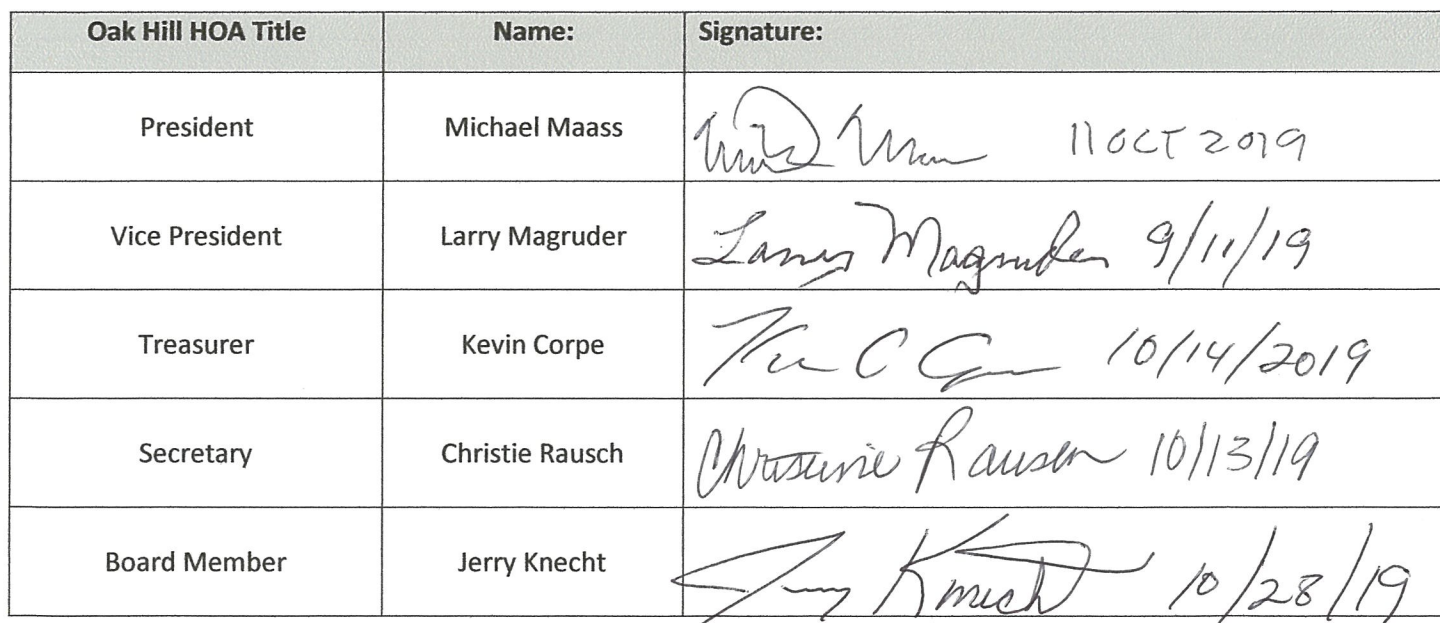 Oak Hill HOA Title Name: Signature:
President Michael Maass 11 OCT 2019
Vice President Larry Magruder Larry Magruder 9/11/19
Treasurer Kevin Corpe 10/14/2019
Secretary Christie Rausch Christine Rausch 10/13/19
Board Member Jerry Knecht Jerry Knecht 10/28/19